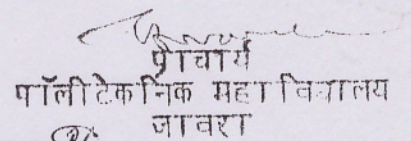 प्राचार्य
पॉलीटेकनिक महाविद्यालय
जावरा